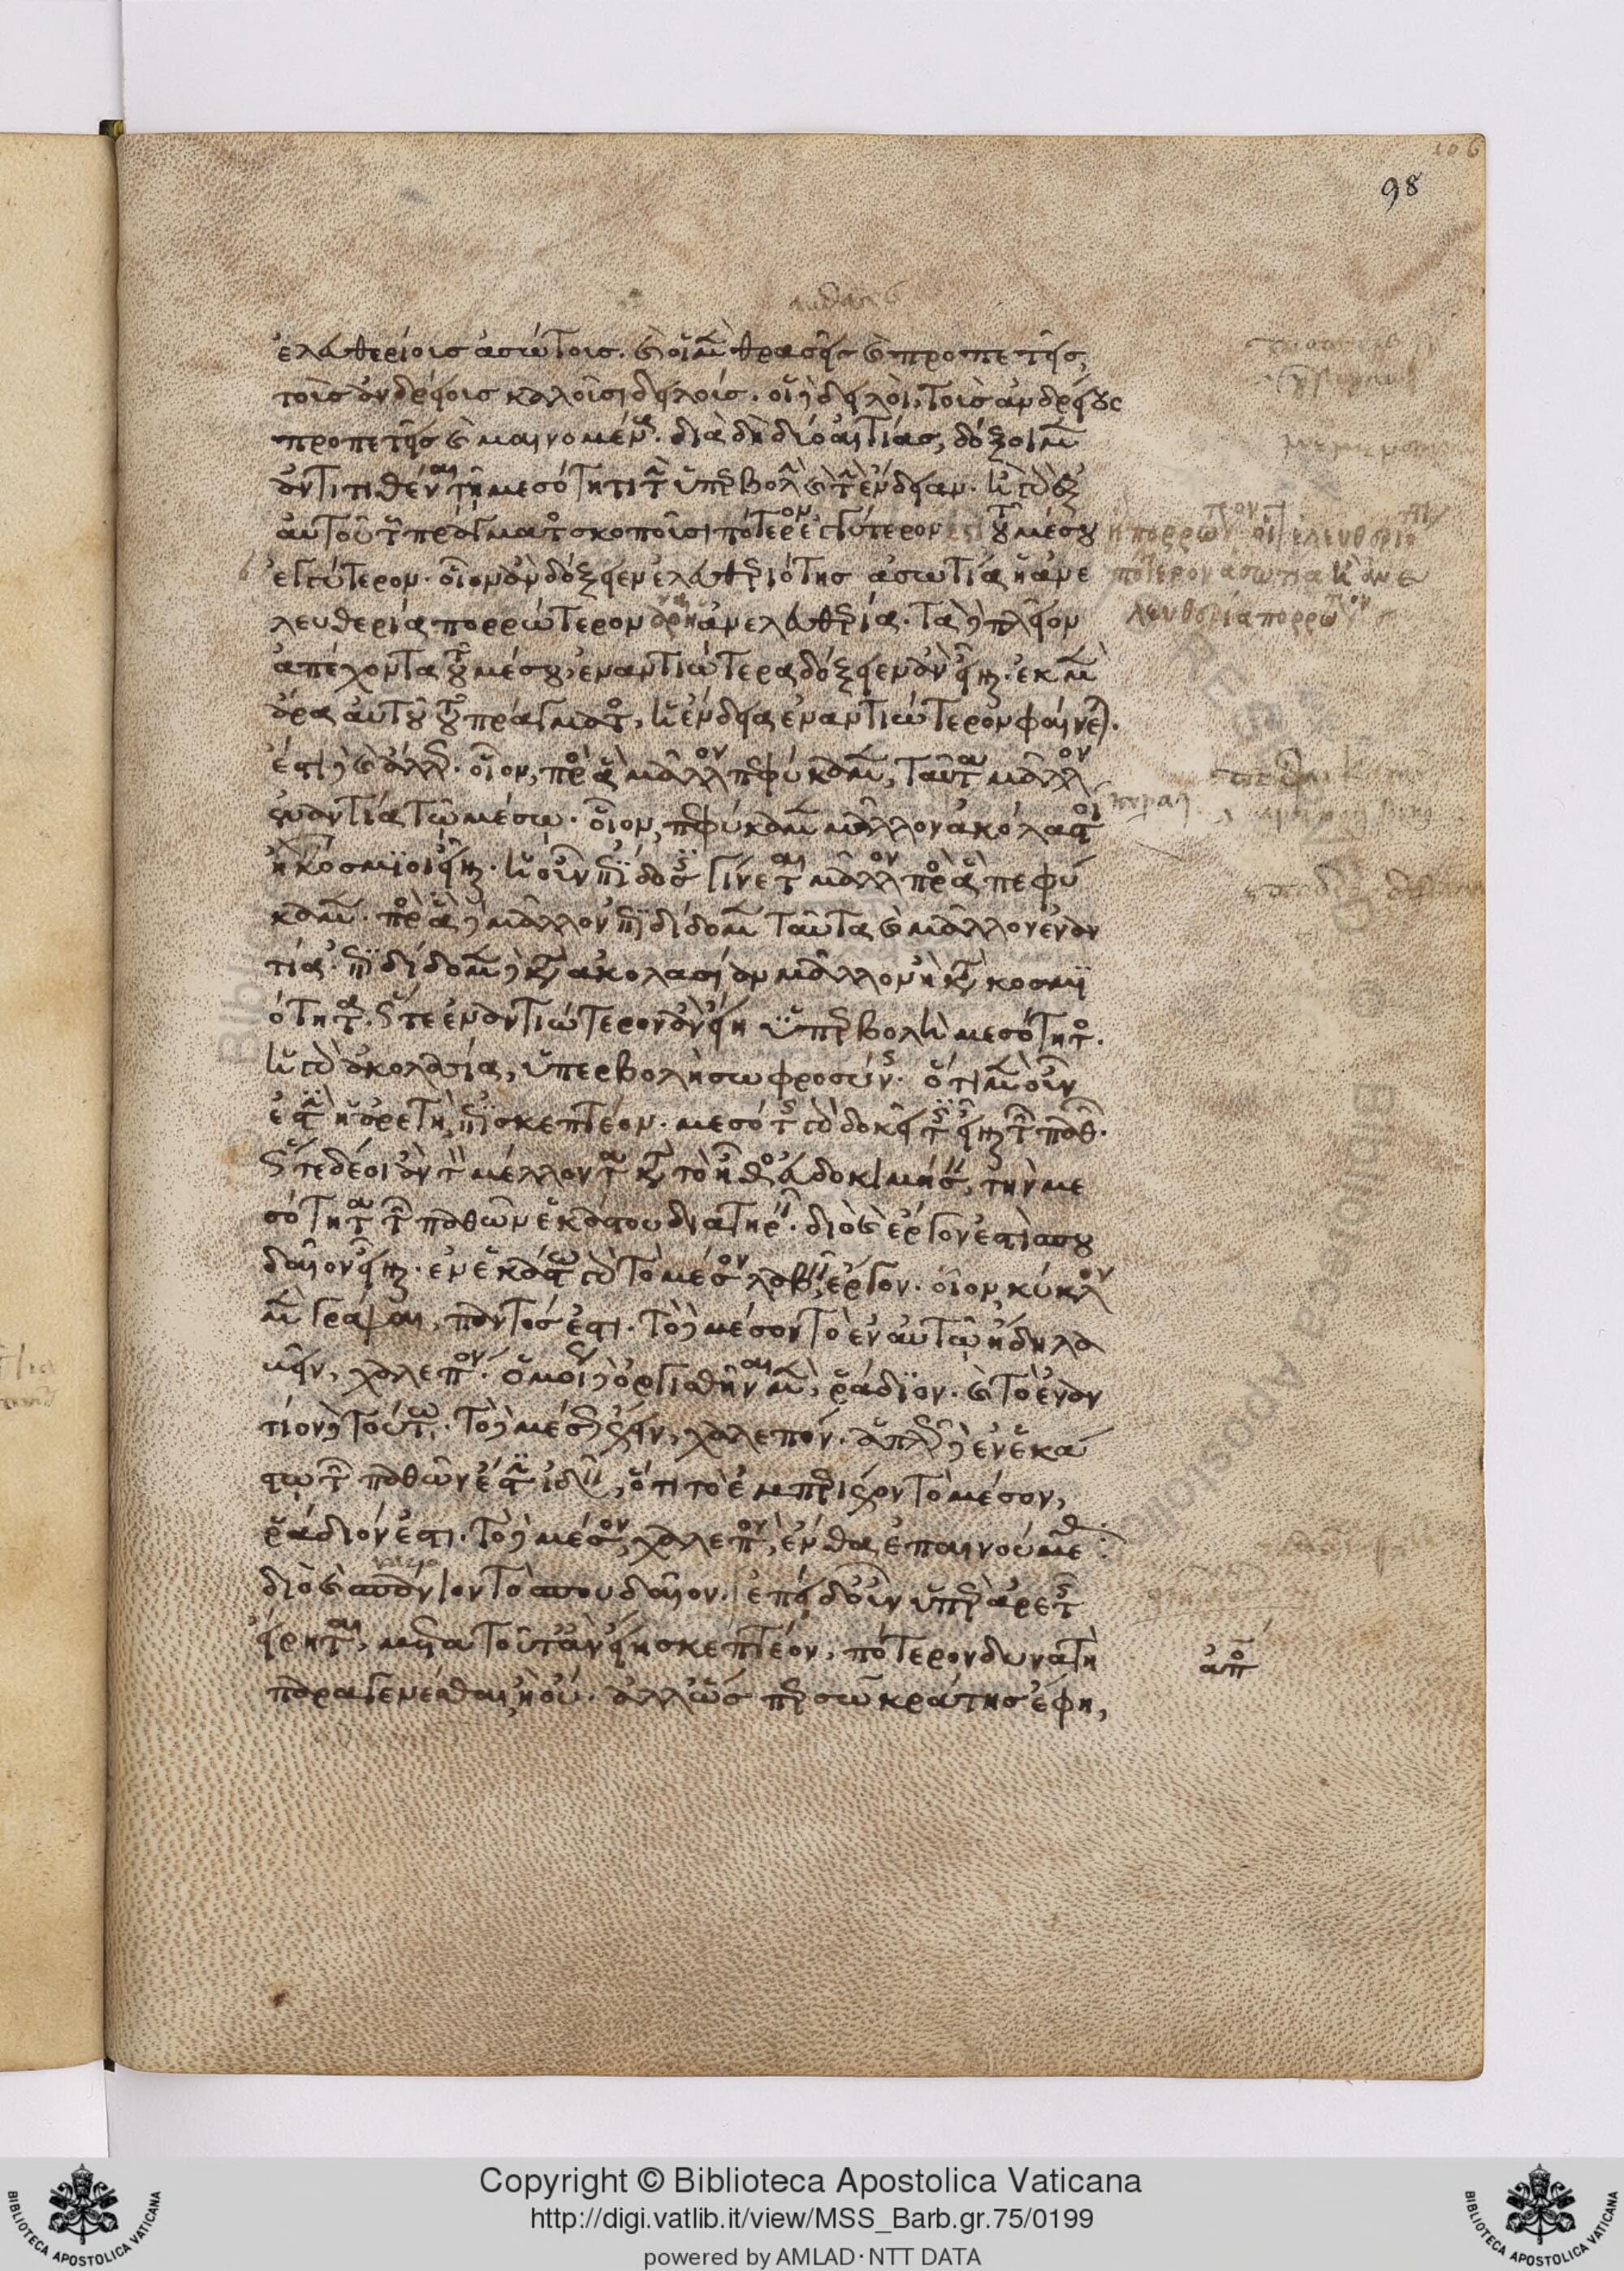 106
98
ἐλευθερίοις ἀσώτοις. καὶ οἱ μὲν θρασεῖς καὶ προπετεῖς,
τοῖς ἀνδρείοις καλοῦσι δειλούς. οἱ δὲ δειλοὶ, τοὺς ἀνδρείους
προπετεῖς καὶ μαινομένους. διὰ δὴ δύο αἰτίας, δόξοιμεν
ἂν ἀντιτιθέναι τῇ μεσότητι τὴν ὑπερβολὴν καὶ τὴν ἔνδειαν. ἢ γὰρ ἐξ
αὐτοῦ τοῦ πράγματος σκοποῦσι πότερον ἐγγύτερον τοῦ μέσου
ἐγγύτερον. οἷον ἂν δόξειεν ἐλευθεριότης ἀσωτία ἢ ἀνε
λευθερίας πορρώτερον εἶναι ἢ ἀνελευθερία. τὰ δὲ πλεῖον
ἀπέχοντα τοῦ μέσου, ἐναντιώτερα δόξειεν ἂν εἶναι. ἐκ μὲν
ἄρα αὐτοῦ τοῦ πράγματος, ἡ ἔνδεια ἐναντιώτερον φαίνεται.
ἔστι δὲ καὶ ἄλλως. οἷον, πρὸς ἃ μᾶλλον πεφύκαμεν, ταῦτα μᾶλλον
ἐναντία τῷ μέσῳ. οἷον, πεφύκαμεν μᾶλλον ἀκόλαστοι
ἢ κόσμιοι εἶναι. ἡ οὖν ἐπίδοσις γίνεται μᾶλλον πρὸς ἃ πεφύ
καμεν. πρὸς ἃ δὲ μᾶλλον ἐπιδίδομεν ταῦτα καὶ μᾶλλον ἐναν
τία. ἐπιδίδομεν δὲ πρὸς ἀκολασίαν μᾶλλον ἢ πρὸς κοσμι
ότητα. ὥστε ἐναντιώτερον ἂν εἴη ἡ ὑπερβολὴ μεσότητος.
ἡ γὰρ ἀκολασία, ὑπερβολὴ σωφροσύνης. ὅτι μὲν οὖν
ἐστὶν ἡ ἀρετὴ, ἐπισκεπτέον. μεσότης γὰρ δοκεῖ τις εἶναι τῶν παθῶν.
ὥστε δέοι ἂν τὸν μέλλοντα κατὰ τὸ ἦθος εὐδοκιμήσειν, τὴν με
σότητα τῶν παθῶν ἑκάστου διατηρεῖν. διὸ καὶ ἔργον ἐστὶ σπου
δαῖον εἶναι. ἐν ἑκάστῳ γὰρ τὸ μέσον λαβεῖν ἔργον. οἷον, κύκλον
μὲν γράψαι, παντός ἐστι. τὸ δὲ μέσον τὸ ἐν αὐτῷ ἤδη λα
βεῖν, χαλεπόν. ὁμοίως δὲ ὀργισθῆναι μὲν, ῥάδιον. καὶ τὸ ἐναν
τίον δὲ τούτῳ. τὸ δὲ μέσως ἔχειν, χαλεπόν. ἁπλῶς δὲ ἐν ἑκά
στῳ τῶν παθῶν ἔστιν ἰδεῖν, ὅτι τὸ ἐμπεριέχον τὸ μέσον,
ῥάδιόν ἐστι. τὸ δὲ μέσον, χαλεπὸν, ἔνθα ἐπαινούμεθα.
διὸ καὶ σπάνιον τὸ σπουδαῖον. ἐπεὶ δ' οὖν ὑπὲρ ἀρετῆς
εἴρηται, μετὰ τοῦτ' ἂν εἴη σκεπτέον, πότερον δυνατὴ
παραγενέσθαι ἢ οὔ. ἀλλ' ὥσπερ σωκράτης ἔφη,
ἢ πορρώ
πότερον ἀσωτία ἢ ἀνε
λευθερία πορρω
ἀπο
Copyright © Biblioteca Apostolica Vaticana
http://digi.vatlib.it/view/MSS_Barb.gr.75/0199
powered by AMLAD·NTT DATA
BIBLIOTECA APOSTOLICA VATICANA
BIBLIOTECA APOSTOLICA VATICANA